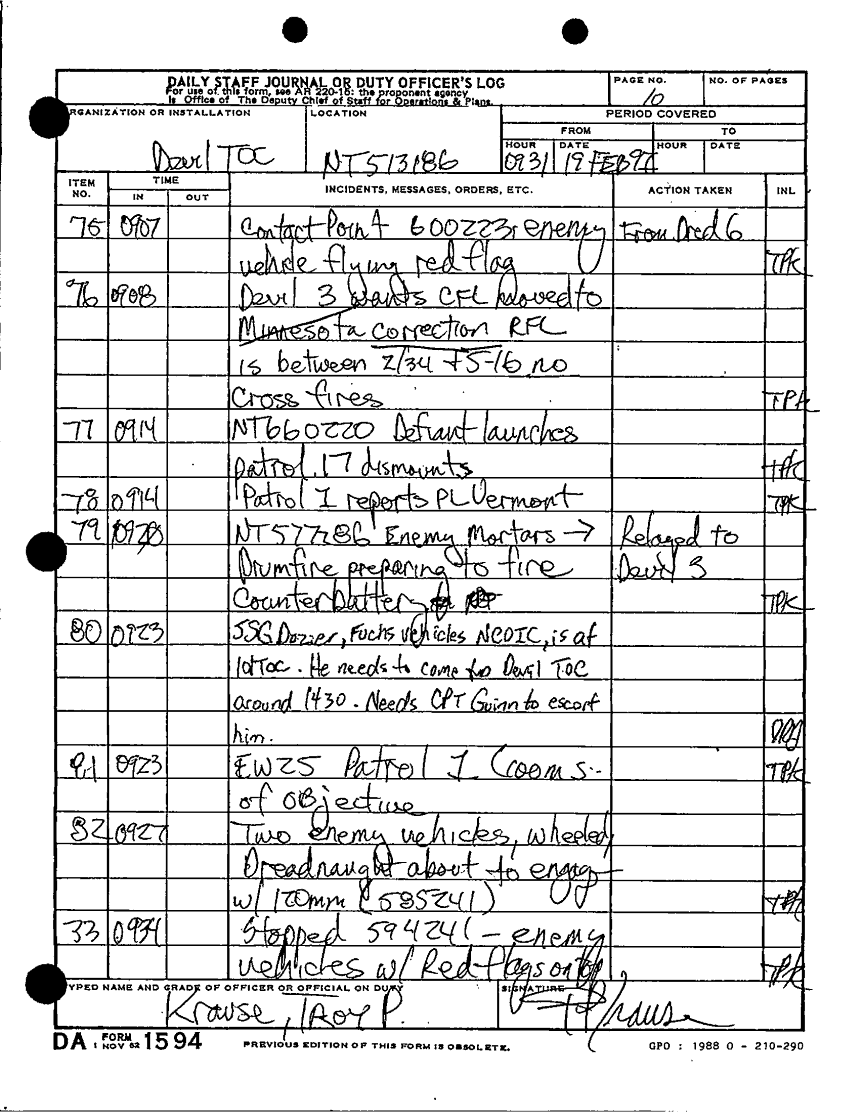 DAILY STAFF JOURNAL OR DUTY OFFICER'S LOG
For use of this form, see AR 220-15: the proponent agency
is Office of The Deputy Chief of Staff for Operations & Plans.
PAGE NO.
10
NO. OF PAGES
RGANIZATION OR INSTALLATION
Devil TOC
LOCATION
NT513186
PERIOD COVERED
FROM
TO
HOUR
0931
DATE
19 FEB 91
HOUR
DATE
ITEM NO.
TIME
IN
OUT
INCIDENTS, MESSAGES, ORDERS, ETC.
ACTION TAKEN
INL
75 0907 Contact Point 600223; enemy From Dred 6
vehicle flying red flag TPK
76 0908 Devil 3 wants CFL moved to
Minnesota correction RFL
is between 2/34 + 5-16 no
Cross fires TPK
77 0914 NT660220 Defiant launches
patrol. 17 dismounts TPK
78 0914 Patrol 1 reports PL Vermont TPK
79 NT577186 Enemy Mortars → Relayed to
Drumfire preparing to fire Devil 3
Counterbattery TPK
80 0923 SSG Dozier, Fuchs vehicles NCOIC, is at
TOC. He needs to come to Devil TOC
around 1430. Needs CPT Guinn to escort
him.
81 0923 EW25 Patrol 1 600m S.
of OBjective TPK
82 0927 Two enemy vehicles, wheeled,
Dreadnaught about to engag
w/ 120mm (585241) TPK
33 0934 Stopped 594241 - enemy
vehicles w/ Red flags on top TPK
YPED NAME AND GRADE OF OFFICER OR OFFICIAL ON DUTY
Krause, TRoy P.
SIGNATURE
Krause
DA FORM 1 NOV 62 1594
PREVIOUS EDITION OF THIS FORM IS OBSOLETE.
GPO : 1988 O - 210-290